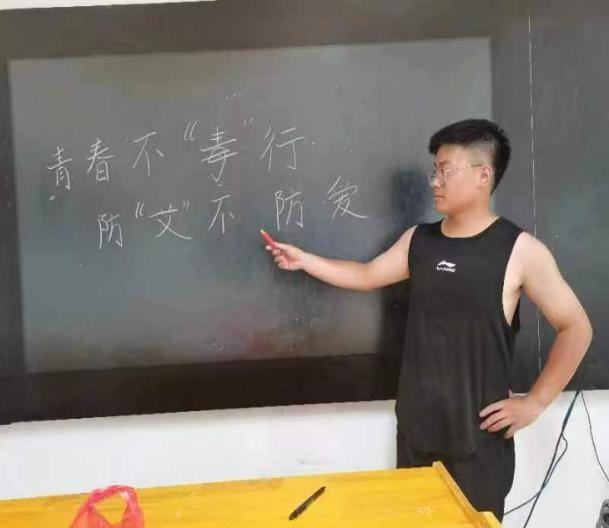 青春不“毒”行
防“艾”不防爱
LI-NING